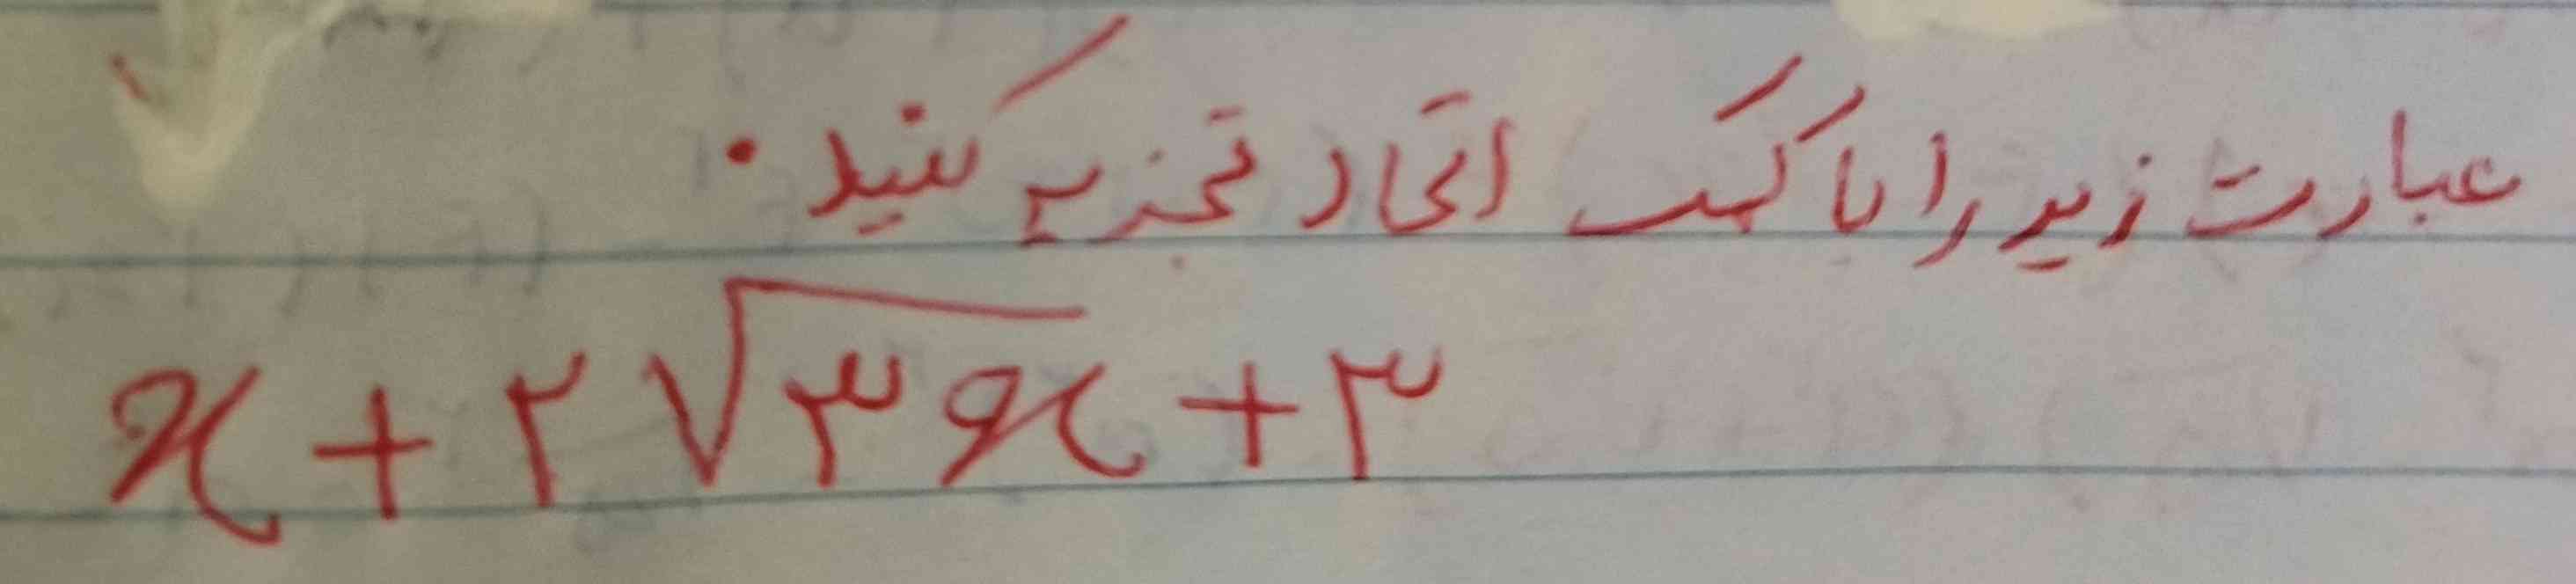 عبارت زیر را با کمک اتحاد تجزیه کنید.
x + ۲√۳x + ۳